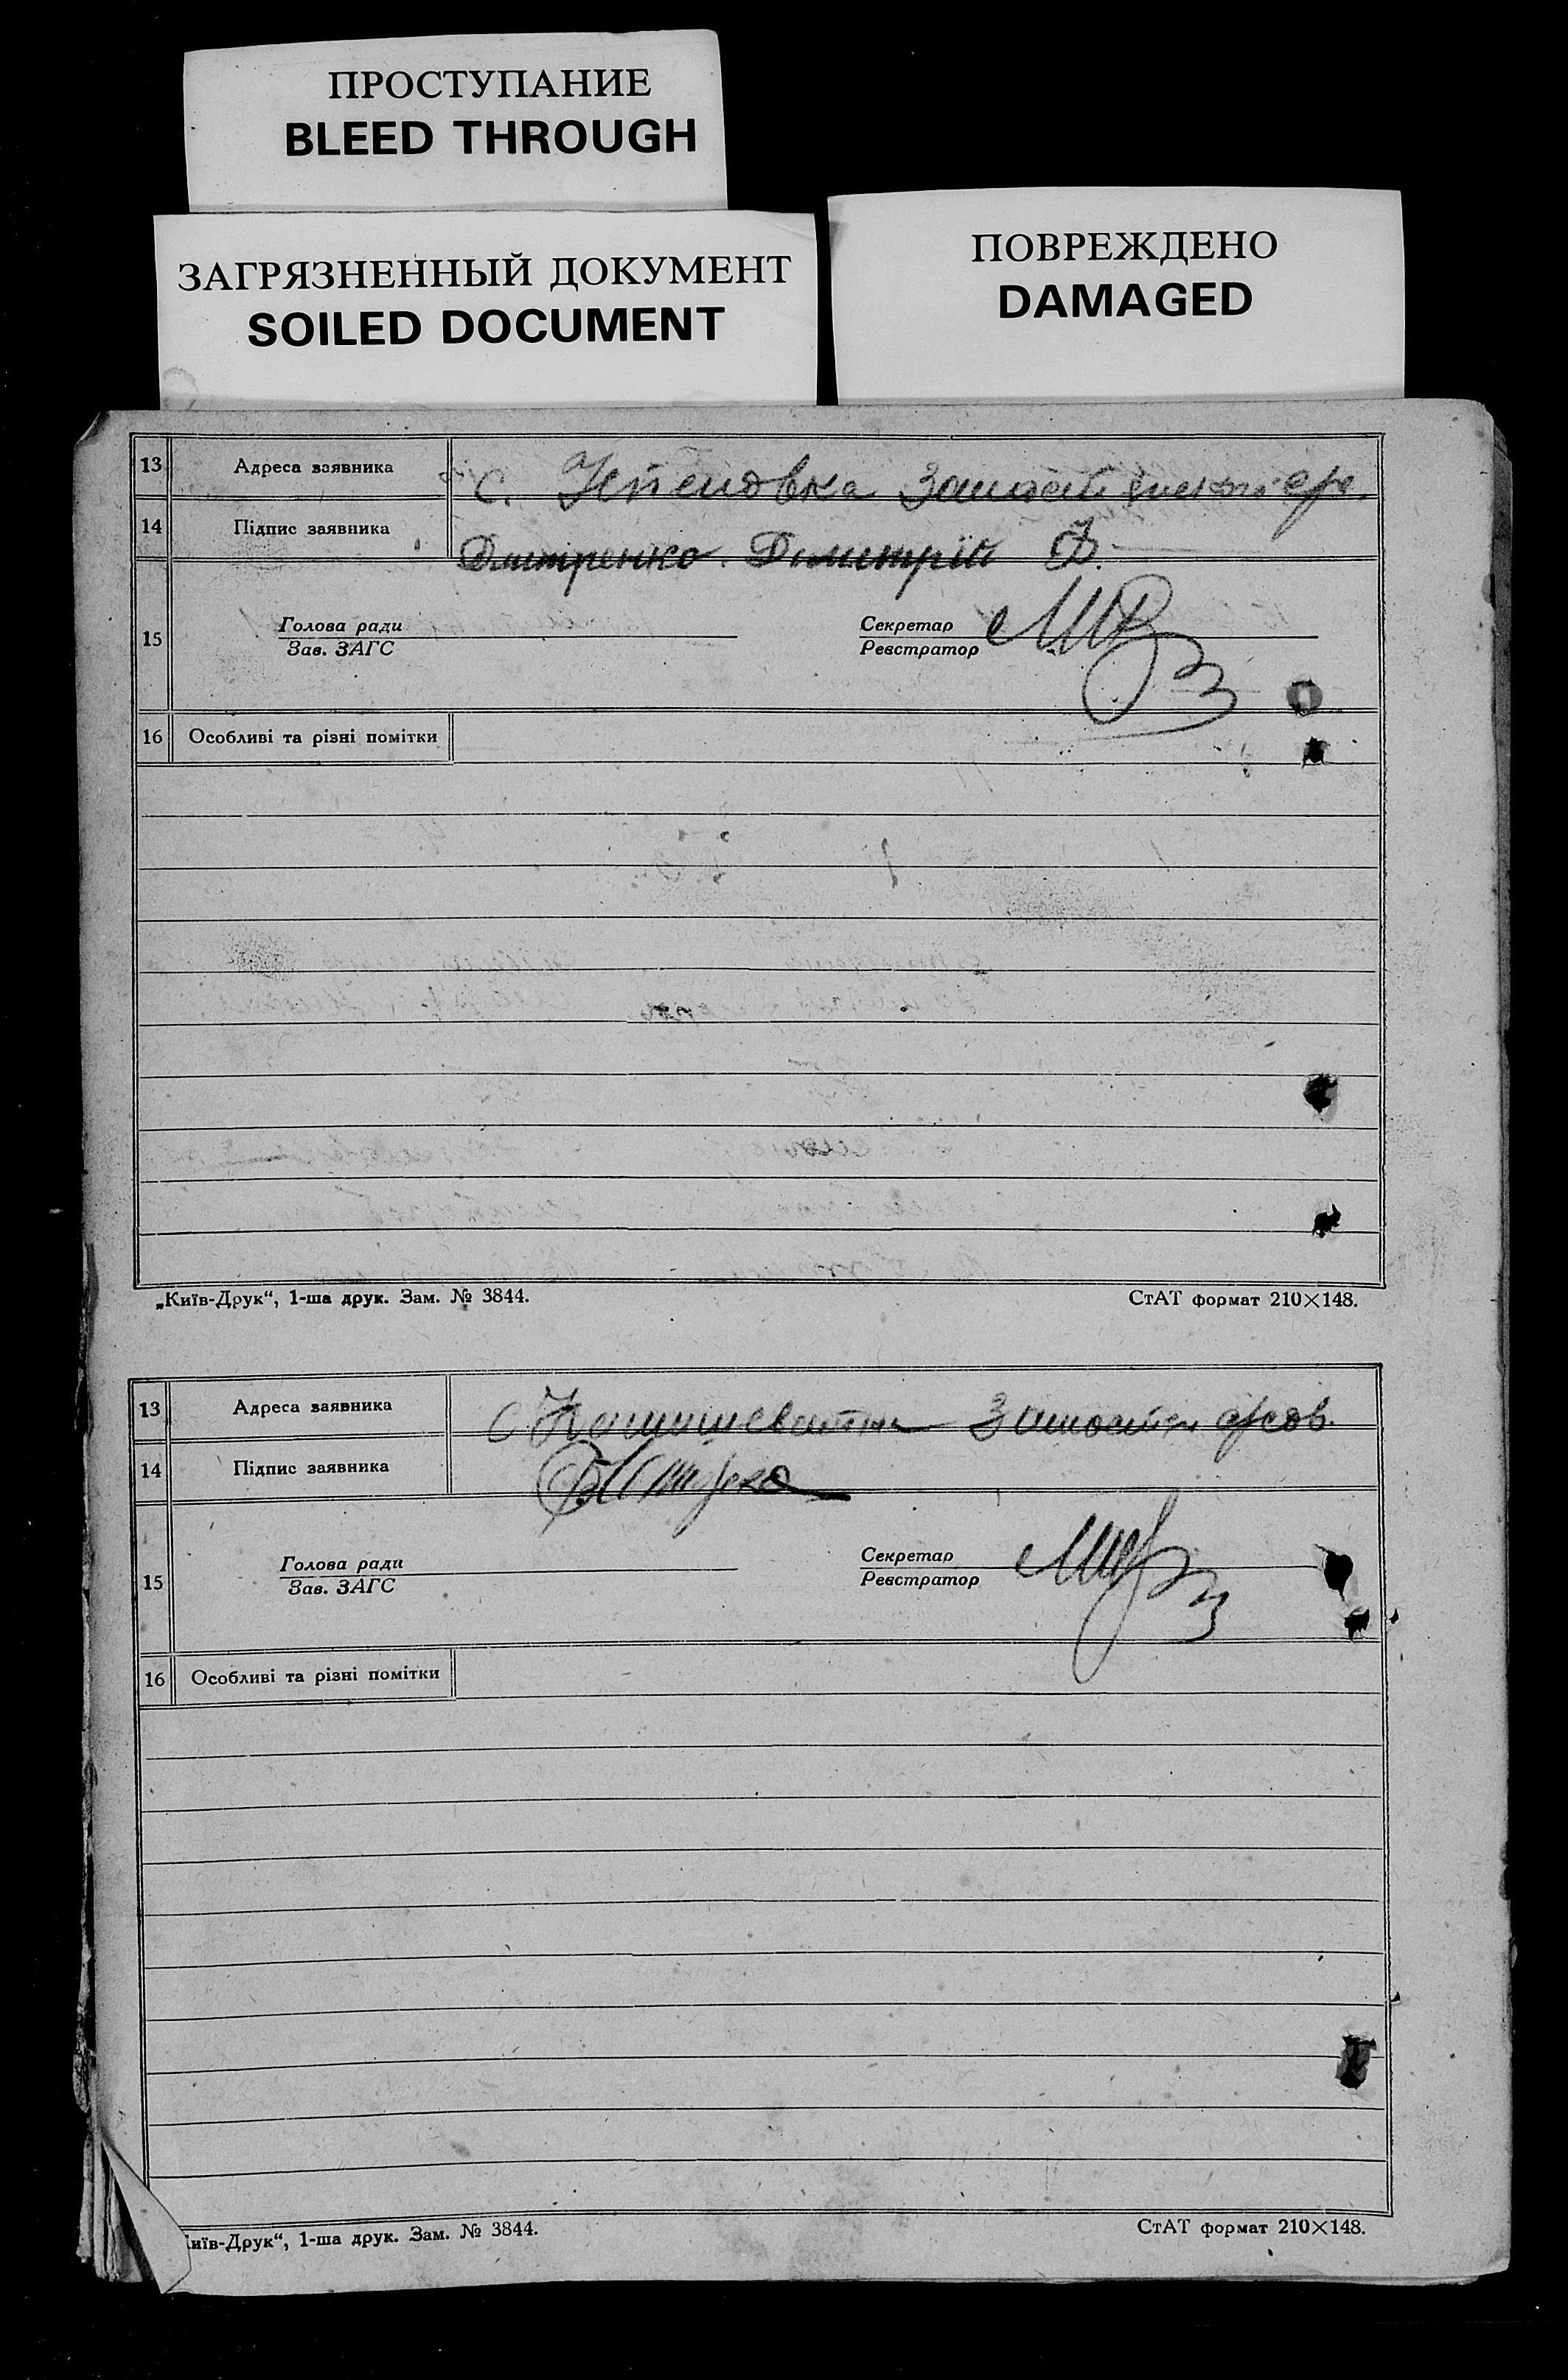 ПРОСТУПАНИЕ
BLEED THROUGH
ЗАГРЯЗНЕННЫЙ ДОКУМЕНТ
SOILED DOCUMENT
ПОВРЕЖДЕНО
DAMAGED
13 Адреса заявника с.
14 Підпис заявника Дмитренко Димитрій Ф.
15 Голова ради Секретар
Зав. ЗАГС Реєстратор
16 Особливі та різні помітки
„Київ-Друк“, 1-ша друк. Зам. № 3844. СтАТ формат 210×148.
13 Адреса заявника с
14 Підпис заявника
15 Голова ради Секретар
Зав. ЗАГС Реєстратор
16 Особливі та різні помітки
иїв-Друк“, 1-ша друк. Зам. № 3844. СтАТ формат 210×148.